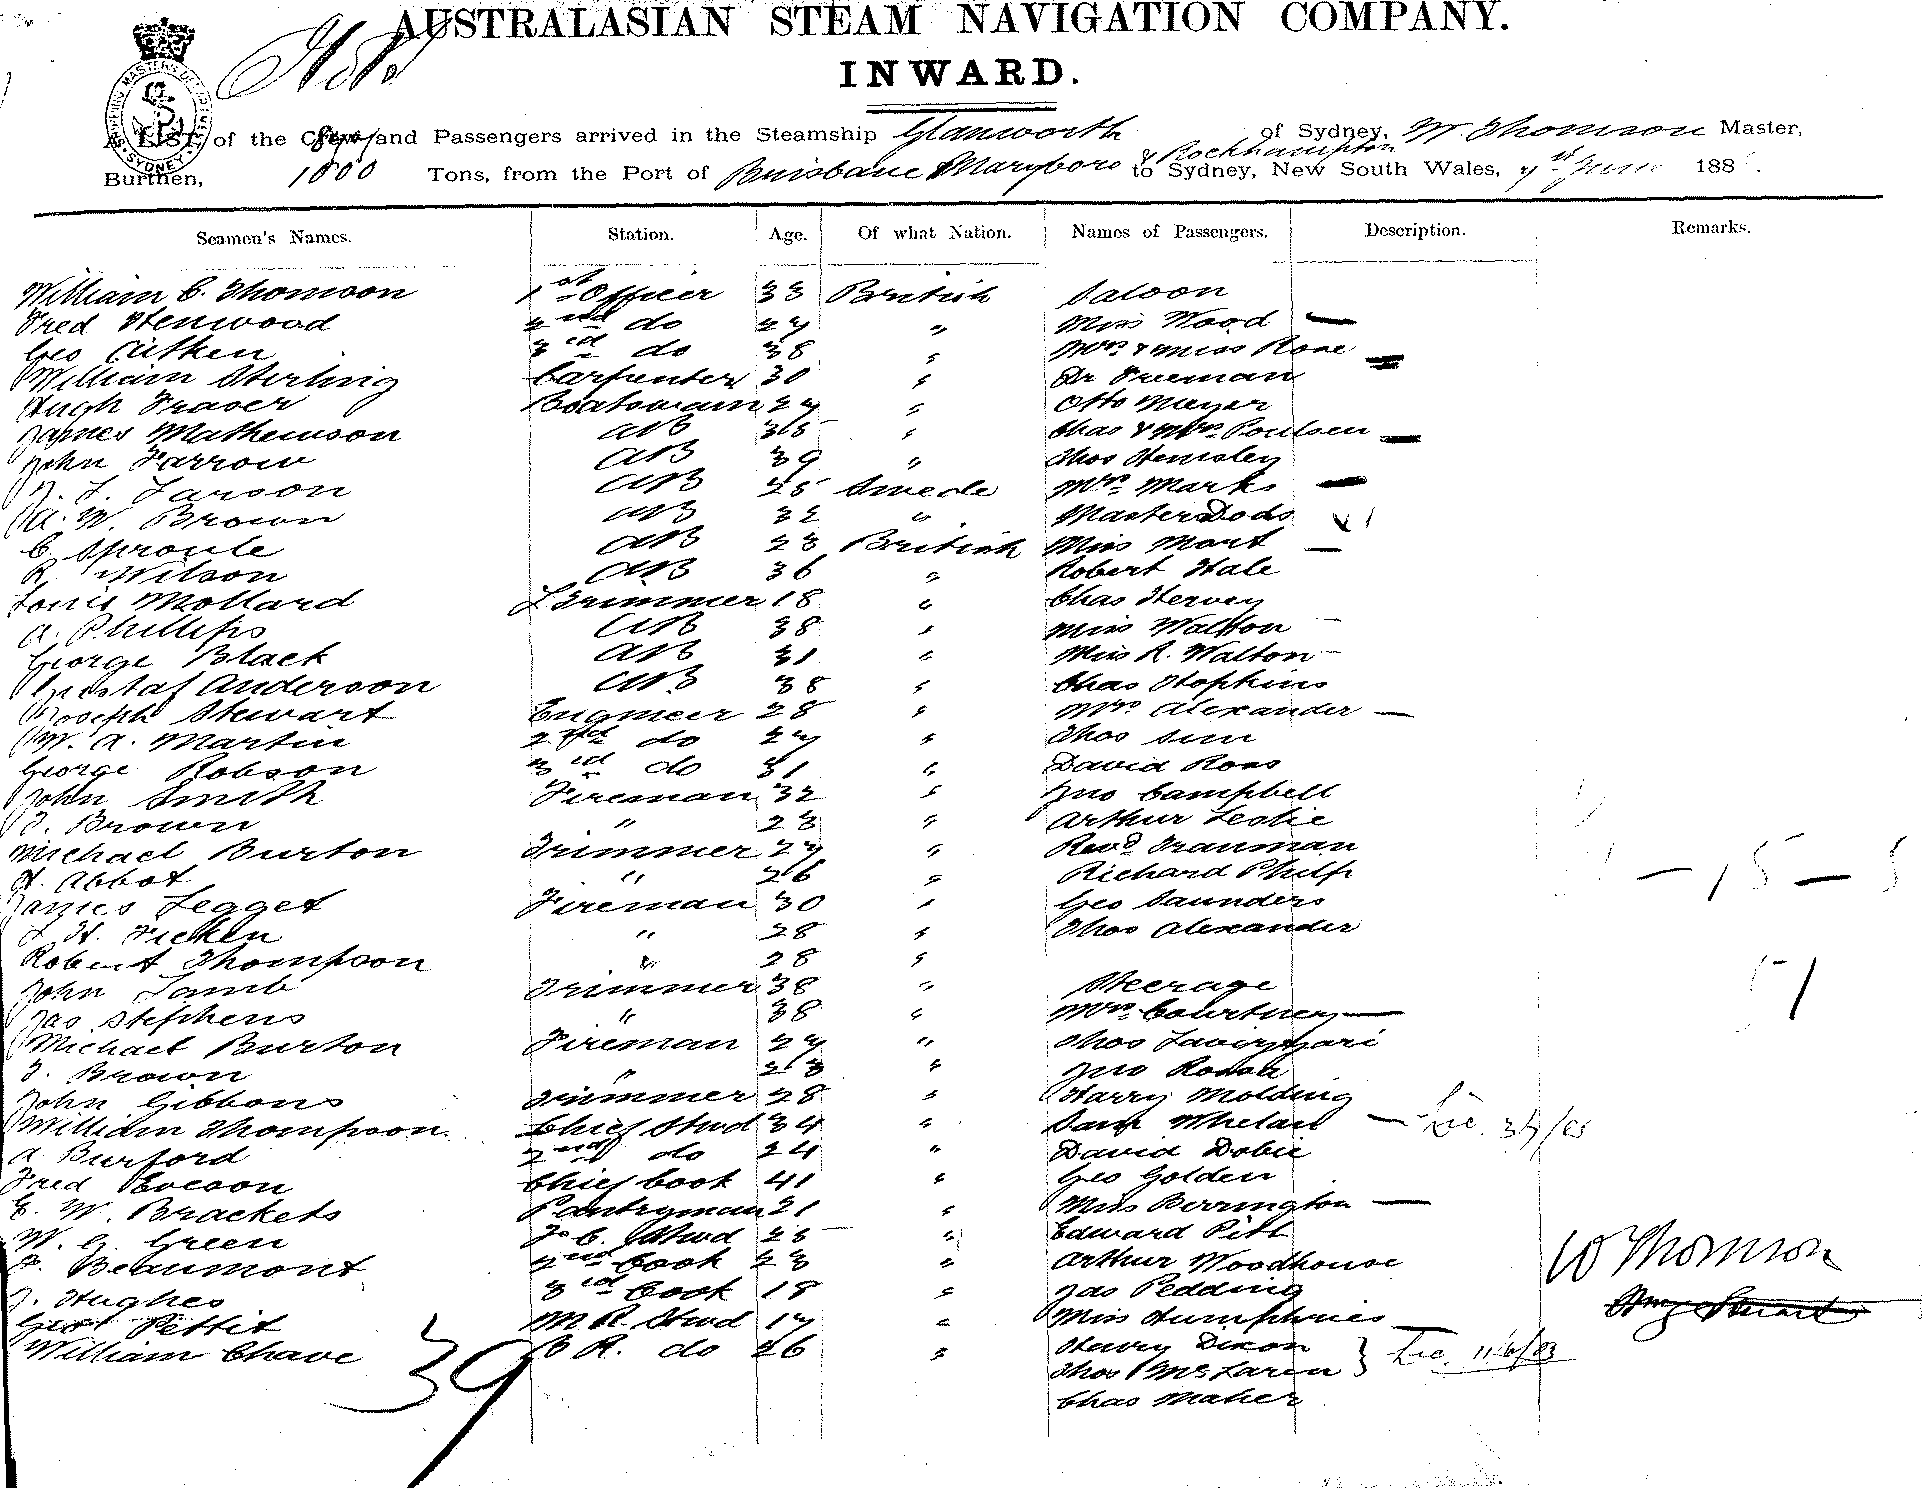 AUSTRALASIAN STEAM NAVIGATION COMPANY.
INWARD.
A LIST of the Crew and Passengers arrived in the Steamship Glanworth of Sydney, W. Thomson Master,
Burthen, 1800 Tons, from the Port of Brisbane Maryboro & Rockhampton to Sydney, New South Wales, June 188
Seamen's Names. Station. Age. Of what Nation. Names of Passengers. Description. Remarks.
William C. Thomson 1st Officer 33 British Saloon
Fred Henwood 2nd do 27 " Miss Wood —
Geo Aitken 3rd do 38 " Mrs & Miss Rose
William Sterling Carpenter 30 " Dr Freeman —
Hugh Fraser Boatswain 27 " Otto Meyer
James Mathewson AB 35 " Chas & Mrs Poulsen —
John Farrow AB 39 " Thos Hemsley
Larson AB 25 Swede Mrs Marks —
A. W. Brown AB 32 " Master Dods
C. Sproule AB 23 British Miss Mort —
R. Wilson AB 36 " Robert Hale
Louis Mollard L Trimmer 18 " Chas Hervey
A. Phillips AB 38 " Miss Walton —
George Black AB 31 " Miss R. Walton —
Gustaf Anderson AB 38 " Chas Hopkins
Joseph Stewart Engineer 28 " Mrs Alexander —
W. A. Martin 2nd do 27 " Thos Sim
George Robson 3rd do 31 " David Ross
John Smith Fireman 32 " Jno Campbell
J. Brown " 23 " Arthur Leslie
Michael Burton Trimmer 27 " Revd Trauman
H. Abbot " 26 " Richard Philp — 15 —
James Legget Fireman 30 " Geo Saunders
Ficken " 28 " Thos Alexander
Robert Thompson " 28 "
John Lamb Trimmer 38 " Steerage 51
Jas Stephens " 38 " Mrs Courtney —
Michael Burton Fireman 27 " Thos
J. Brown " 23 " Jno
John Gibbons Trimmer 28 " Harry Molding
William Thompson Chief Stwd 34 " Sam Whelan —
A Burford 2nd do 24 " David Dobie
Fred Chief Cook 41 " Geo Golden
E. W. Brackets Pantryman 21 " Miss Berrington —
W. G. Green F. C. Stwd 25 " Edward Pitt
F. Beaumont 2nd Cook 23 " Arthur Woodhouse W Thomson
J. Hughes 3rd Cook 18 " Jas Pedding
Geo Pettit M. R. Stwd 17 " Miss Humphries —
William Chave B R. do 26 " Henry Dixon
39 Thos McLaren
Chas Maher